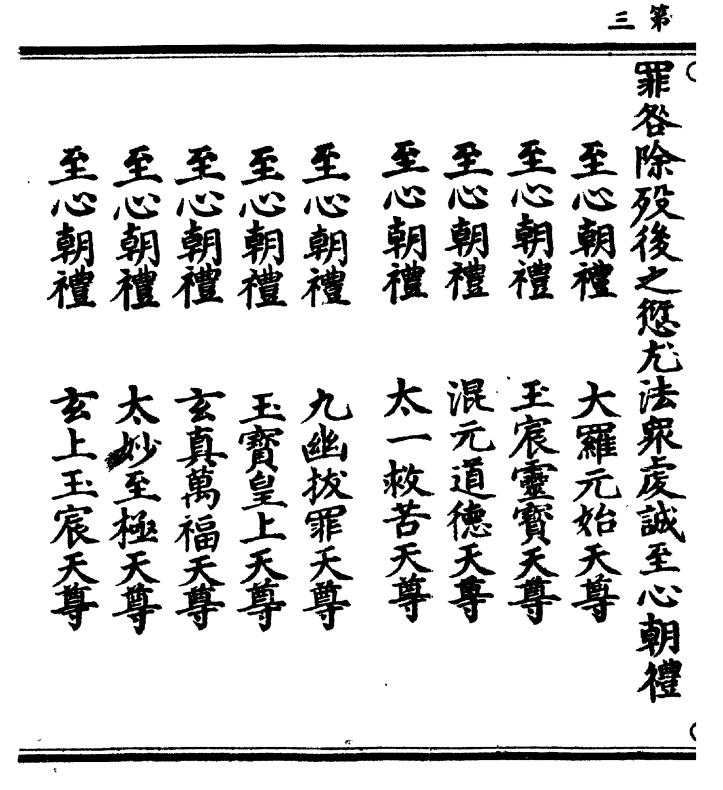 第三
罪咎除歿後之愆尤法眾虔誠至心朝禮
至心朝禮 大羅元始天尊
至心朝禮 玉宸靈寶天尊
至心朝禮 混元道德天尊
至心朝禮 太一救苦天尊
至心朝禮 九幽拔罪天尊
至心朝禮 玉寶皇上天尊
至心朝禮 玄真萬福天尊
至心朝禮 太妙至極天尊
至心朝禮 玄上玉宸天尊